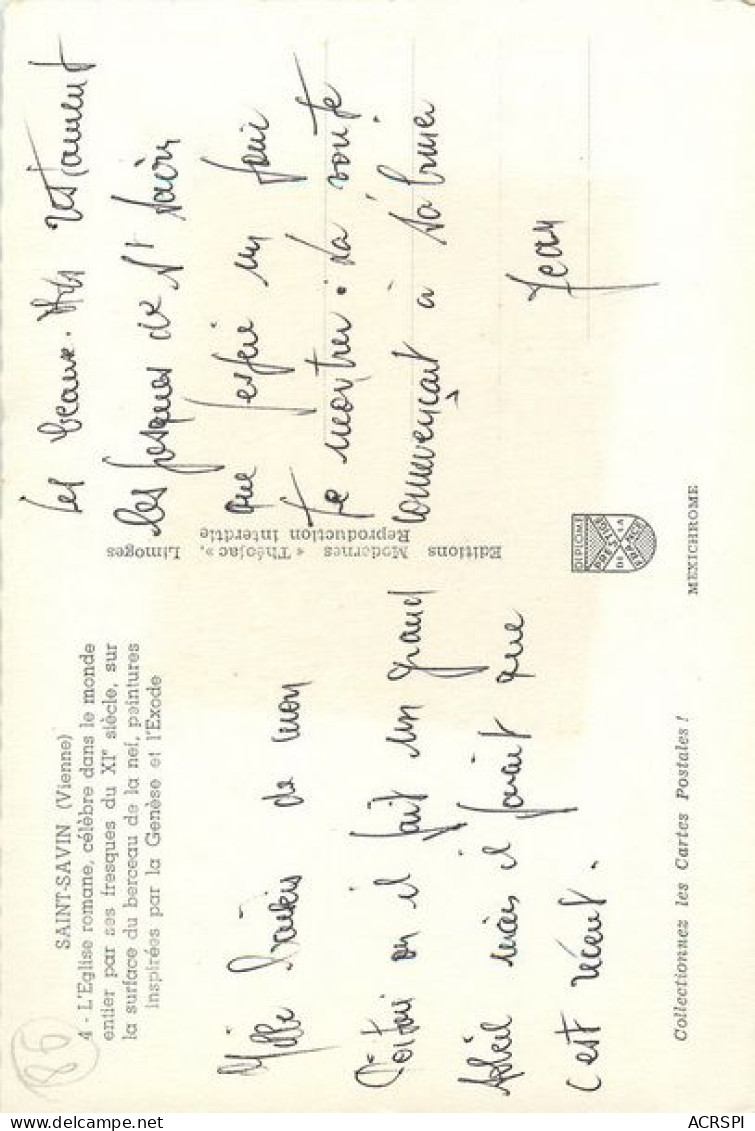 SAINT-SAVIN (Vienne)
4 - L'Eglise romane, célèbre dans le monde
entier par ses fresques du XIᵉ siècle, sur
la surface du berceau de la nef, peintures
inspirées par la Genèse et l'Exode
Mille baisers de mon
Poitou où il fait un grand
soleil mais il paraît que
c'est récent.
Collectionnez les Cartes Postales !
Editions Modernes « Théojac », Limoges
Reproduction interdite
Les beaux-Arts restaurent
les fresques de St Savin
que j'espère un jour
te montrer. La voûte
commençait à s'abîmer
Jean
DIPLOME
PRESTIGE
DE LA
FRANCE
MEXICHROME
86
delcampe.net
ACRSPI